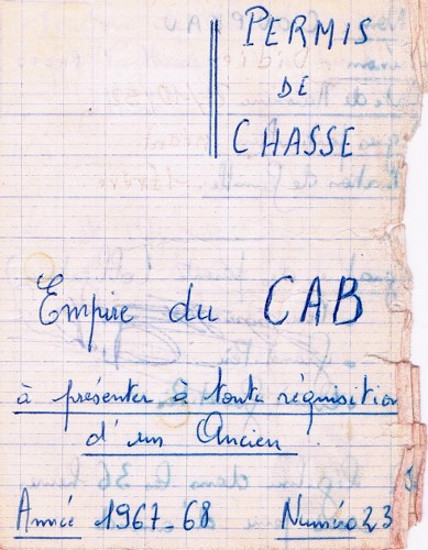 PERMIS
DE
CHASSE
Empire du CAB
à présenter à toute réquisition
d'un Ancien !
Année 1967-68 Numéro 23